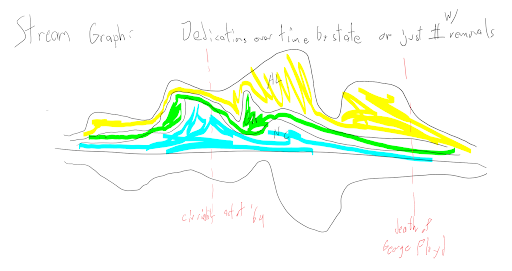 Stream Graph: Dedications over time by state or just # w/ removals
AL
NC
civil right act of '64
death of
George Floyd